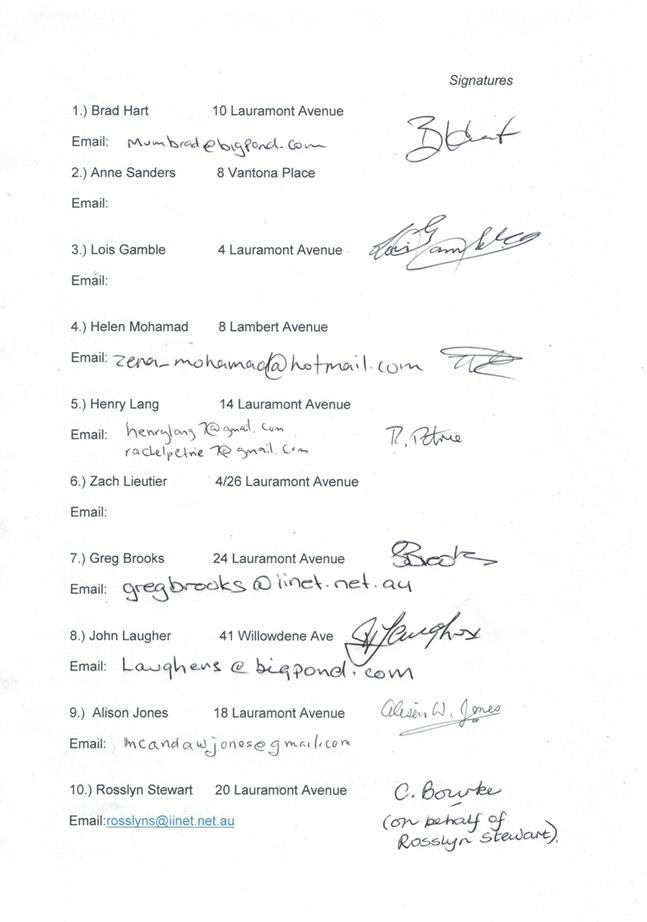 Signatures
1.) Brad Hart 10 Lauramont Avenue
Email: mumbrad@bigpond.com
2.) Anne Sanders 8 Vantona Place
Email:
3.) Lois Gamble 4 Lauramont Avenue Lois Gamble
Email:
4.) Helen Mohamad 8 Lambert Avenue
Email: zena_mohamad@hotmail.com
5.) Henry Lang 14 Lauramont Avenue
Email: henrylang7@gmail.com R. Petrie
rachelpetrie7@gmail.com
6.) Zach Lieutier 4/26 Lauramont Avenue
Email:
7.) Greg Brooks 24 Lauramont Avenue GBrooks
Email: gregbrooks@iinet.net.au
8.) John Laugher 41 Willowdene Ave
Email: Laughens@bigpond.com
9.) Alison Jones 18 Lauramont Avenue Alison W. Jones
Email: mcandawjones@gmail.com
10.) Rosslyn Stewart 20 Lauramont Avenue C. Bourke
Email:rosslyns@iinet.net.au (on behalf of
Rosslyn Stewart).